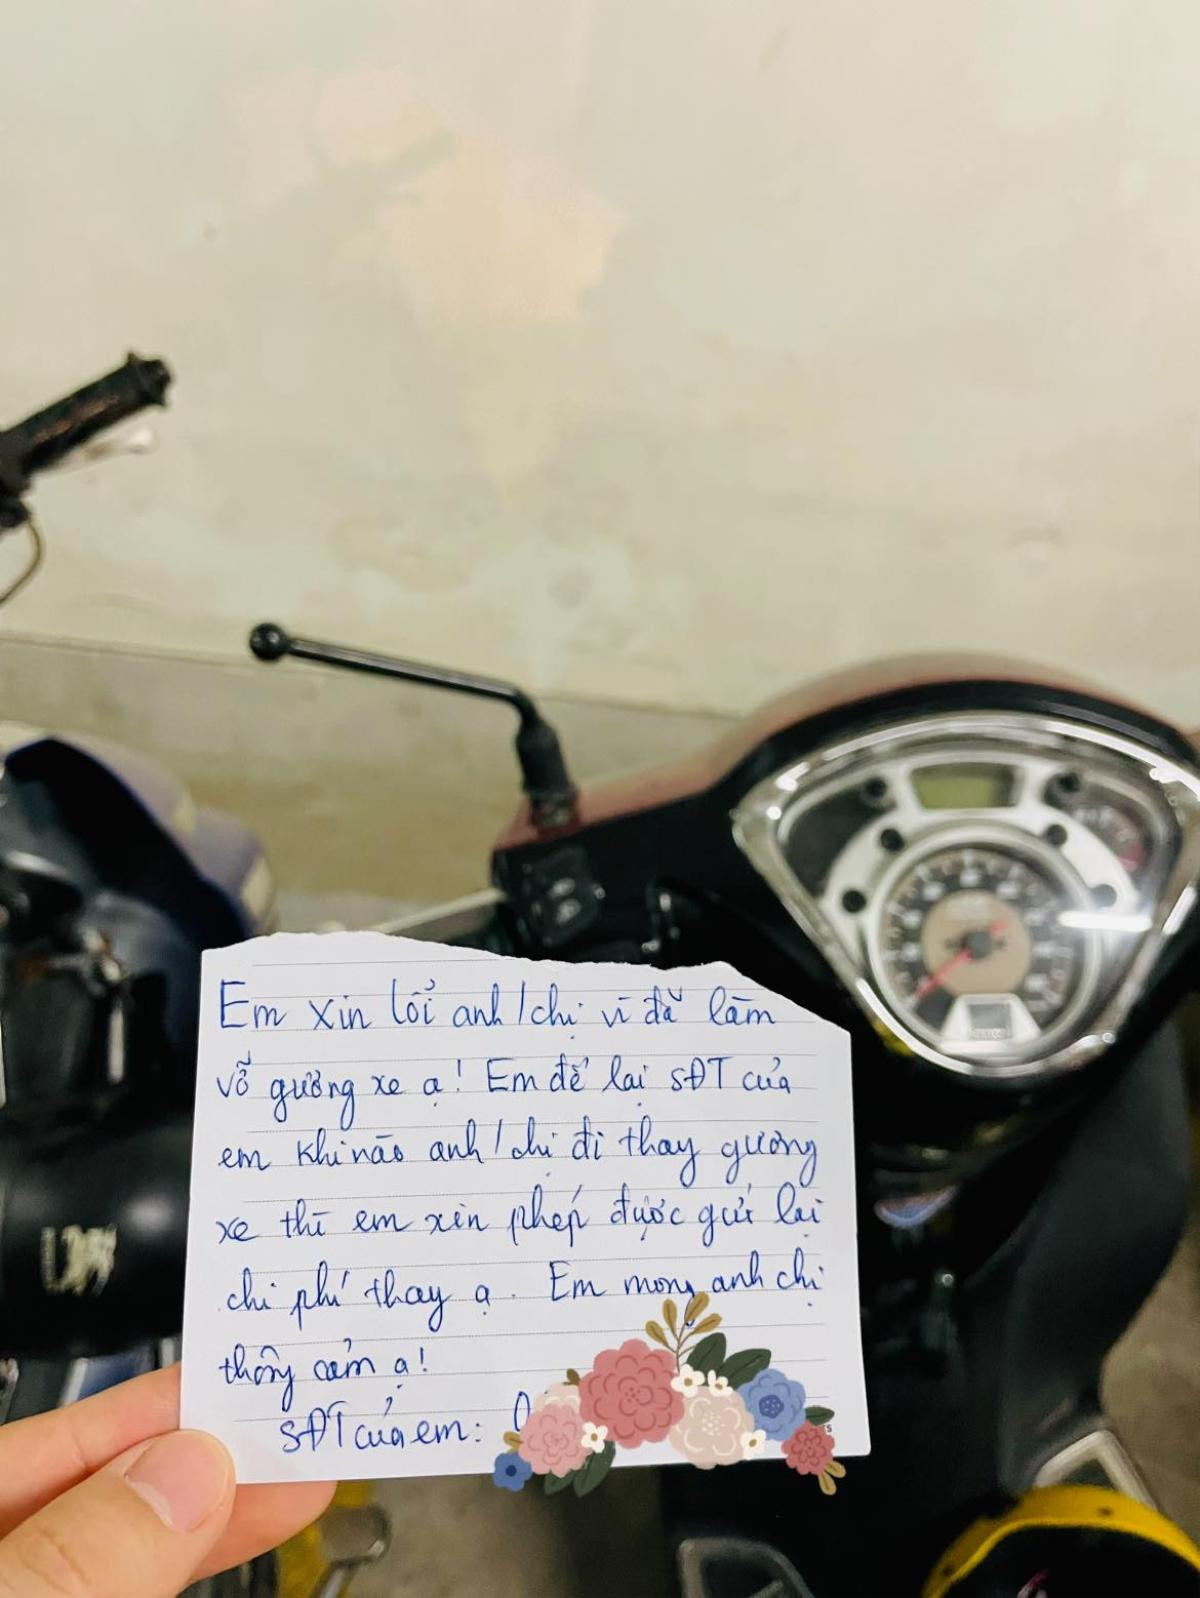 Em xin lỗi anh/chị vì đã làm
vỡ gương xe ạ! Em để lại SĐT của
em khi nào anh/chị đi thay gương
xe thì em xin phép được gửi lại
chi phí thay ạ. Em mong anh chị
thông cảm ạ!
SĐT của em: 0